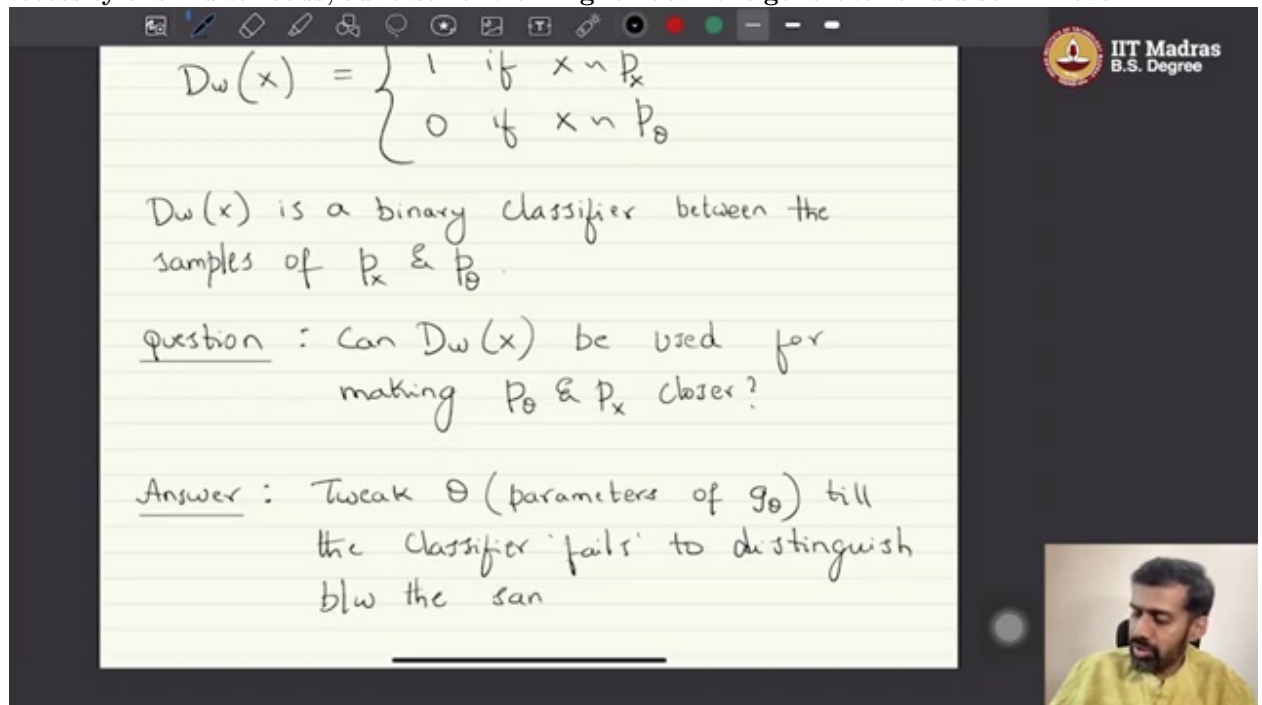 IIT Madras
B.S. Degree
Dw(x) = { 1 if x ~ Px
0 if x ~ Pθ
Dw(x) is a binary classifier between the
samples of Px & Pθ.
question : Can Dw(x) be used for
making Pθ & Px closer?
Answer : Tweak θ (parameters of gθ) till
the Classifier 'fails' to distinguish
b/w the sam